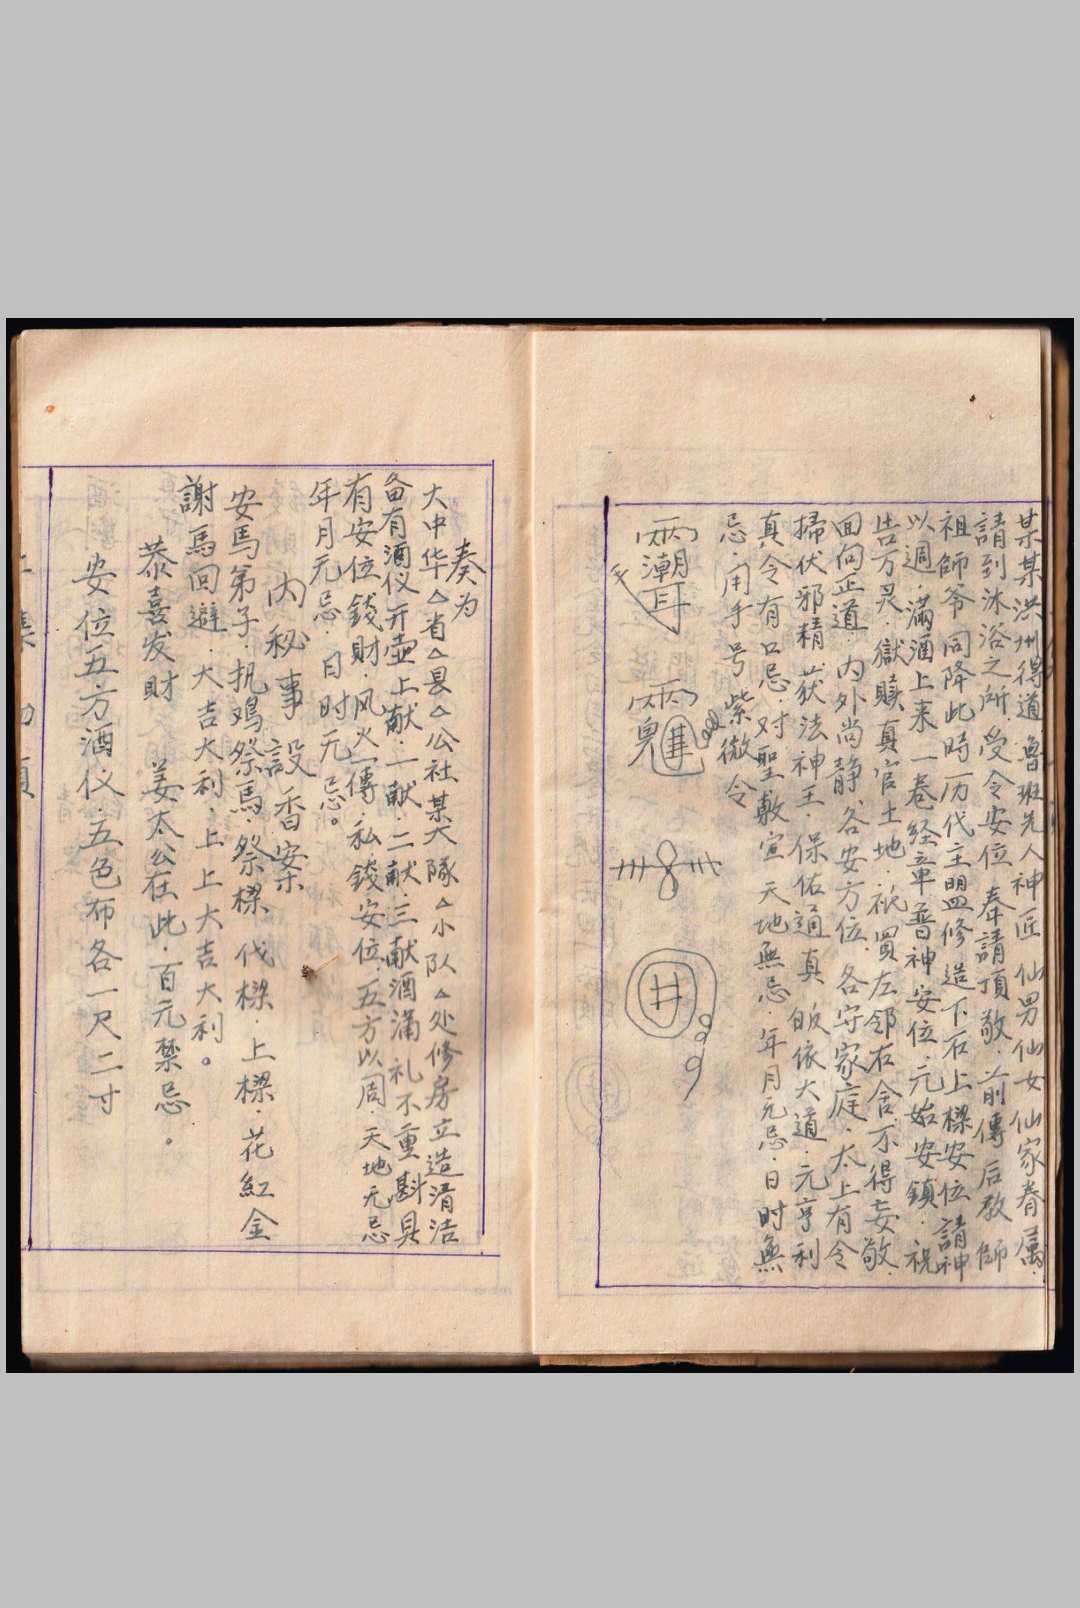 某某洪州得道魯班先人神匠仙男仙女仙家眷属.
請到沐浴之所.受令安位.奉請頂敬.前傳后教師
祖師爷同降此時历代主盟修造下石上樑安位請神
以週.滿酒上来一卷经章普神安位.元始安鎮.祝
告万灵.嶽瀆真官土地.祇買左邻右舍不得妄敬.
回向正道.内外尚静.各安方位.各守家庭.太上有令
掃伏邪精.获法神王.保佑通真.皈依大道.元亨利
真令有口忌.对聖敷宣.天地無忌.年月元忌.日时無
忌.用手号紫微令
大中华△省△县△公社某大隊△小队△处修房立造清洁
奏为
备有酒仪开壶上献.一献.二献.三献酒滿礼不重斟具
有安位錢財.风火一傳.私錢安位.五方以周.天地无忌
年月元忌.日时元忌。
内秘事設香案
安馬弟子.执鸡祭馬.祭樑.伐樑.上樑.花紅金
謝馬回避.大吉大利.上上大吉大利。
恭喜发財 姜太公在此.百元禁忌。
安位五方酒仪.五色布各一尺二寸